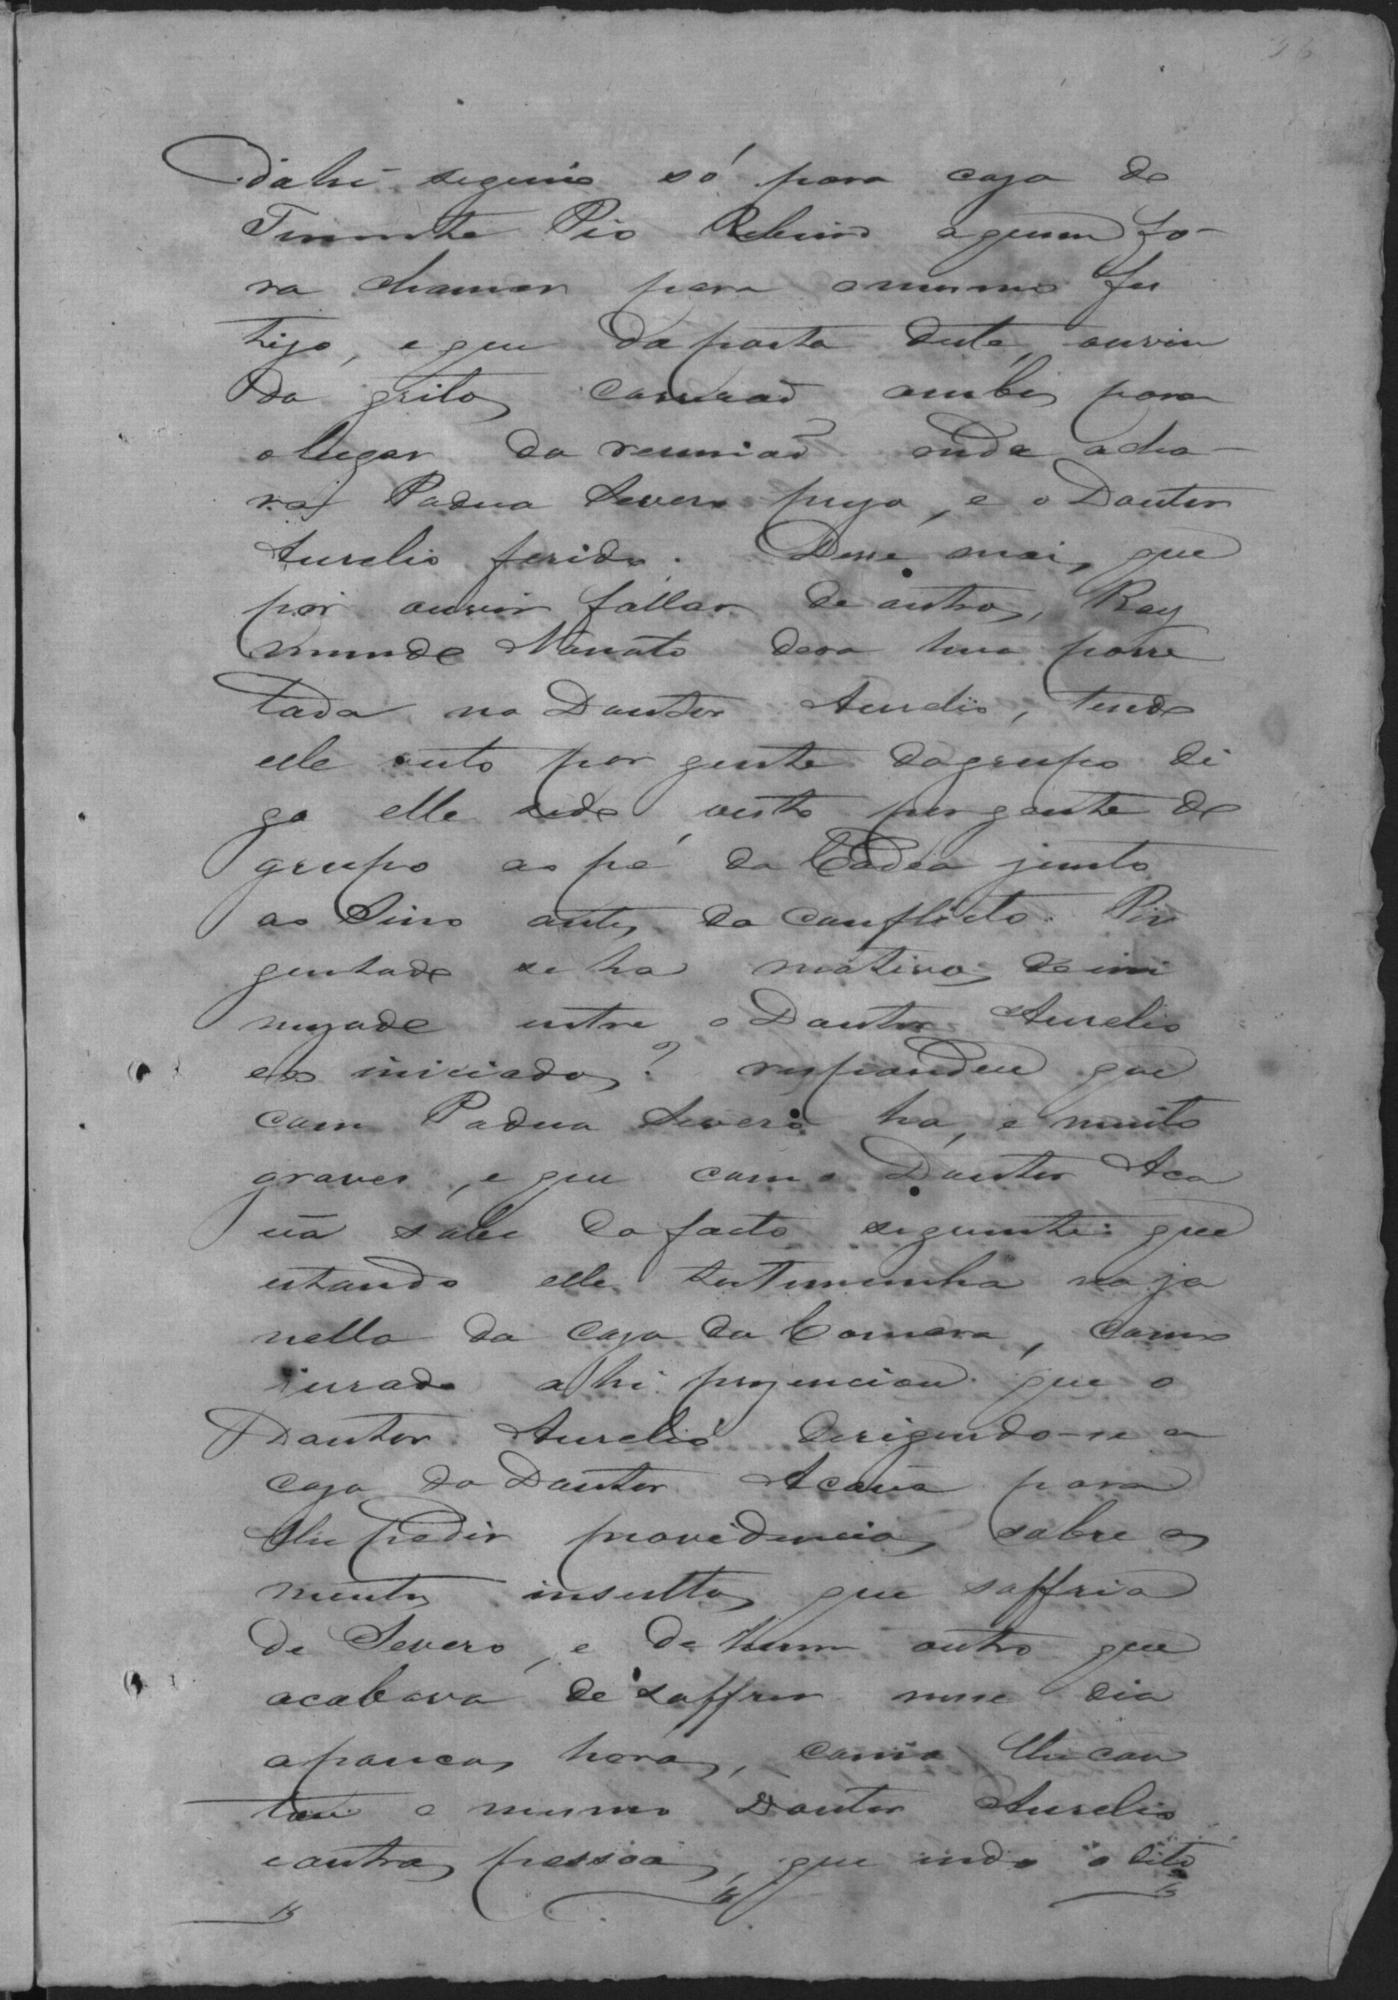 dahi seguio só para caza do
Tinente Pio Rebeiro aquem fo-
ra chamar para o mesmo fes
tijo, e que da porta deste, ouvin
do gritos correrão ambos para
o lugar da reunião onde acha-
rão Padua Severo prezo, e o Doutor
Aurelio ferido. Disse mais, que
por ouvir fallar de outros, Ray
mundo Nonato dera hua porre
tada no Doutor Aurelio, tendo
elle visto por gente do grupo di
go elle sido visto por gente do
grupo ao pé da Cadea junto
ao Sino antes do conflicto. Per
guntado se ha motivos de ini
mizade entre o Doutor Aurelio
e os iniciados? respondeu que
com Padua Severo ha, e muito
graves, e que com o Doutor Aca
uã sabe do facto seguinte: que
estando elle testimunha na ja
nella da caza da Camara, como
jurado ahi prezenciou que o
Doutor Aurelio derigindo-se a
caza do Doutor Acauã para
lhe pedir providencias sobre os
muitos insultos que soffria
de Severo, e de hum outro que
acabava de soffrer nesse dia
a poucas horas, como lhe con
tou o mesmo Doutor Aurelio
e outras pessoas, que indo o dito